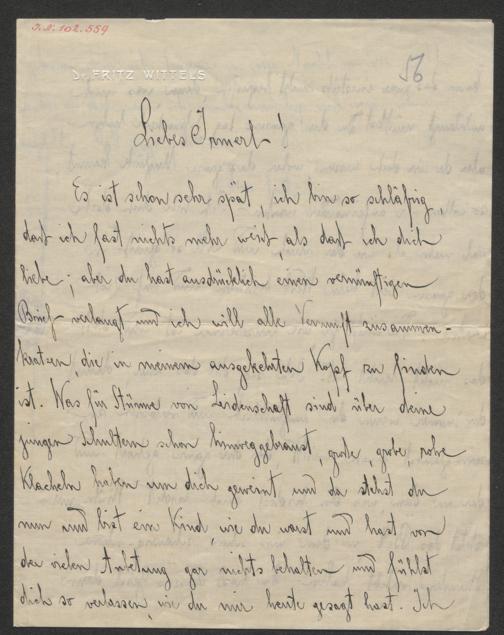 I.N. 102.559
56
Dr. FRITZ WITTELS
Liebes Irmerl!
Es ist schon sehr spät, ich bin so schläfrig,
daß ich fast nichts mehr weiß, als daß ich dich
liebe; aber du hast ausdrücklich einen vernünftigen
Brief verlangt und ich will alle Vernunft zusammen-
kratzen, die in meinem ausgekehrten Kopf zu finden
ist. Was für Stürme von Leidenschaft sind über deine
jungen Schultern schon hinweggebraust, große, grobe, rohe
Klacheln haben um dich geweint, und da stehst du
nun und bist ein Kind, wie du warst und hast von
der vielen Anbetung gar nichts behalten und fühlst
dich so verlassen, wie du mir heute gesagt hast. Ich